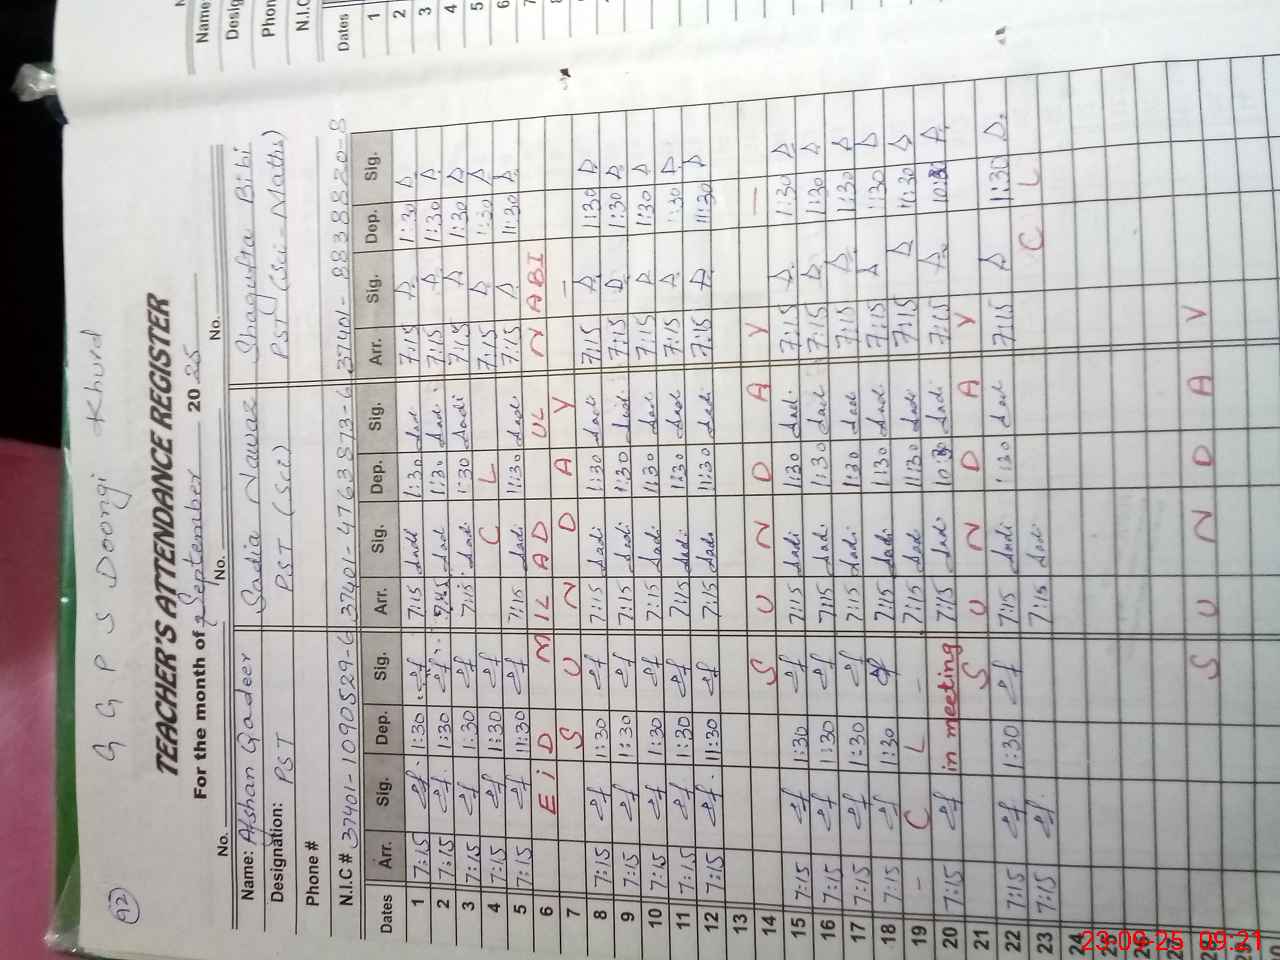 92
G G P S Doongi Khurd
TEACHER'S ATTENDANCE REGISTER
For the month of September 2025
No. No. No.
Name: Afshan Qadeer Sadia Nawaz Shagufta Bibi
Designation: PST PST (Sci) PST (Sci-Maths)
Phone #
N.I.C # 37401-1090529-6 37401-4763873-6 37401-8838820-8
Dates Arr. Sig. Dep. Sig. Arr. Sig. Dep. Sig. Arr. Sig. Dep. Sig.
1 7:15 1:30 7:15 1:30 7:15 1:30
2 7:15 1:30 7:15 1:30 7:15 1:30
3 7:15 1:30 7:15 1:30 7:15 1:30
4 7:15 1:30 C L 7:15 1:30
5 7:15 11:30 7:15 11:30 7:15 11:30
6 E i D M I L A D UL N A B I
7 S U N D A Y –
8 7:15 1:30 7:15 1:30 7:15 1:30
9 7:15 1:30 7:15 1:30 7:15 1:30
10 7:15 1:30 7:15 1:30 7:15 1:30
11 7:15 1:30 7:15 1:30 7:15 1:30
12 7:15 11:30 7:15 11:30 7:15 11:30
13
14 S U N D A Y –
15 7:15 1:30 7:15 1:30 7:15 1:30
16 7:15 1:30 7:15 1:30 7:15 1:30
17 7:15 1:30 7:15 1:30 7:15 1:30
18 7:15 1:30 7:15 1:30 7:15 1:30
19 – C L – 7:15 11:30 7:15 11:30
20 7:15 in meeting 7:15 10:30 7:15 10:30
21 S U N D A Y
22 7:15 1:30 7:15 1:30 7:15 11:30
23 7:15 7:15 C L
24
25
26
27
28 S U N D A Y
29
Name:
Desig
Phon
N.I.C
Dates
1
2
3
4
5
6
7
8
23-09-25 09:21